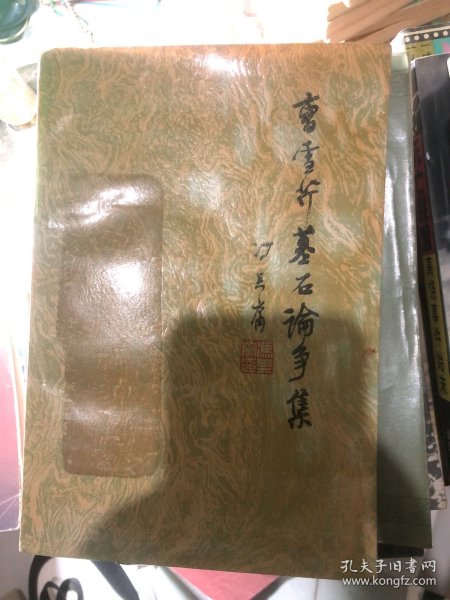 曹雪芹墓石論爭集
冯其庸
孔夫子旧书网
www.kongfz.com